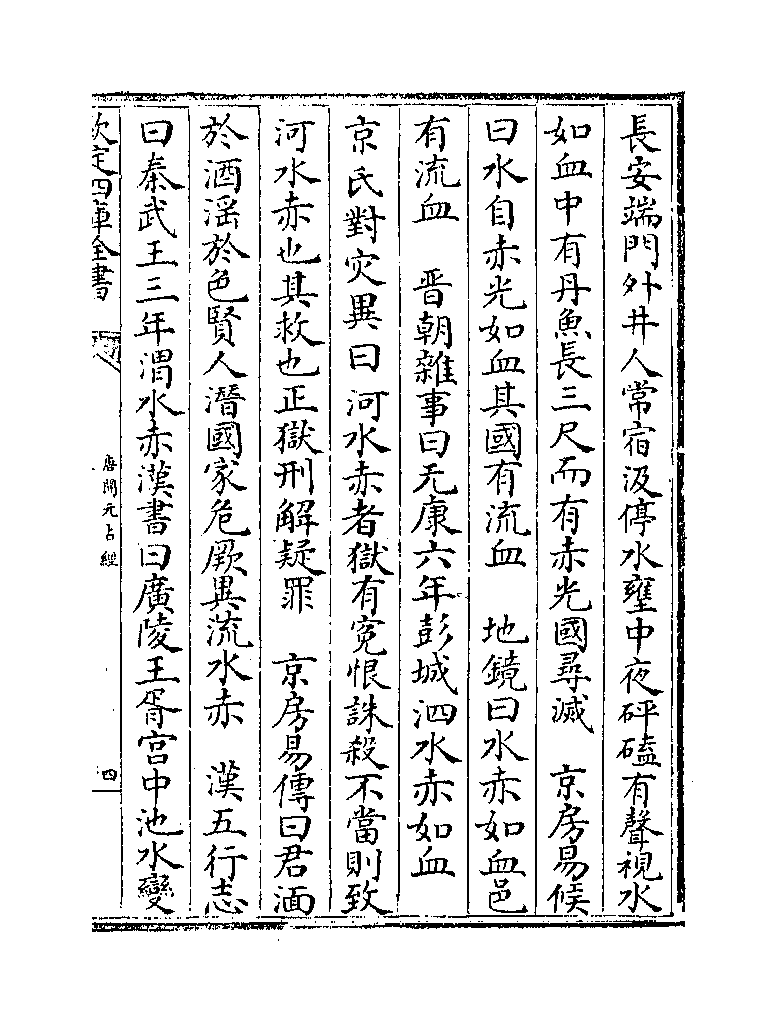 長安端門外井人常宿汲停水甕中夜砰磕有聲視水
如血中有丹魚長三尺而有赤光國尋滅　京房易候
曰水自赤光如血其國有流血　地鏡曰水赤如血邑
有流血　晉朝雜事曰元康六年彭城泗水赤如血
京氏對灾異曰河水赤者獄有寃恨誅殺不當則致
河水赤也其救也正獄刑解疑罪　京房易傳曰君湎
於酒滛於色賢人潛國家危厥異流水赤　漢五行志
曰秦武王三年渭水赤漢書曰廣陵王胥宫中池水變
欽定四庫全書
唐開元占經
四